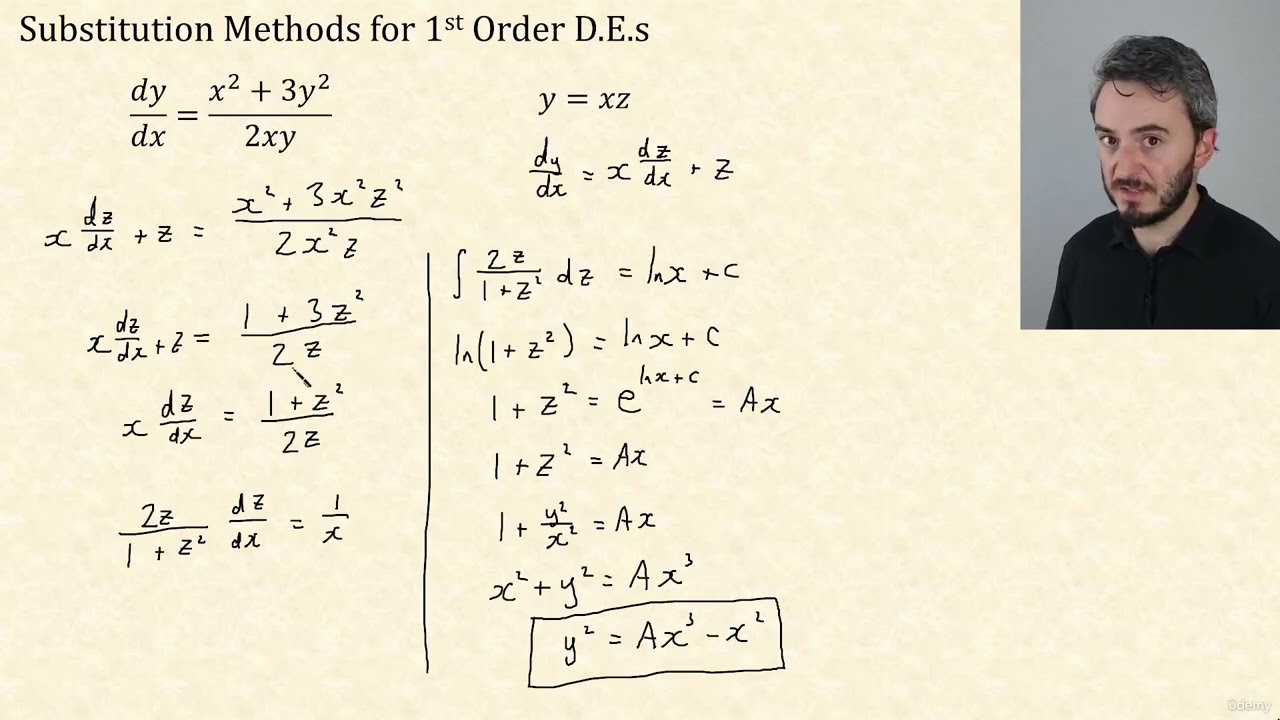 Substitution Methods for 1st Order D.E.s
dy/dx = (x² + 3y²)/(2xy)
y = xz
dy/dx = x dz/dx + z
x dz/dx + z = (x² + 3x²z²)/(2x²z)
x dz/dx + z = (1 + 3z²)/(2z)
x dz/dx = (1 + z²)/(2z)
2z/(1 + z²) dz/dx = 1/x
∫ 2z/(1 + z²) dz = ln x + c
ln(1 + z²) = ln x + c
1 + z² = e^(ln x + c) = Ax
1 + z² = Ax
1 + y²/x² = Ax
x² + y² = Ax³
y² = Ax³ - x²
ûdemy